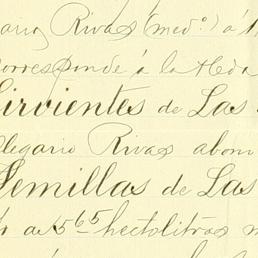 Rivas (med.º) á
corresponde á la Hda
Sirvientes de Las
Olegario Rivas abon
Semillas de Las
565 hectolitros